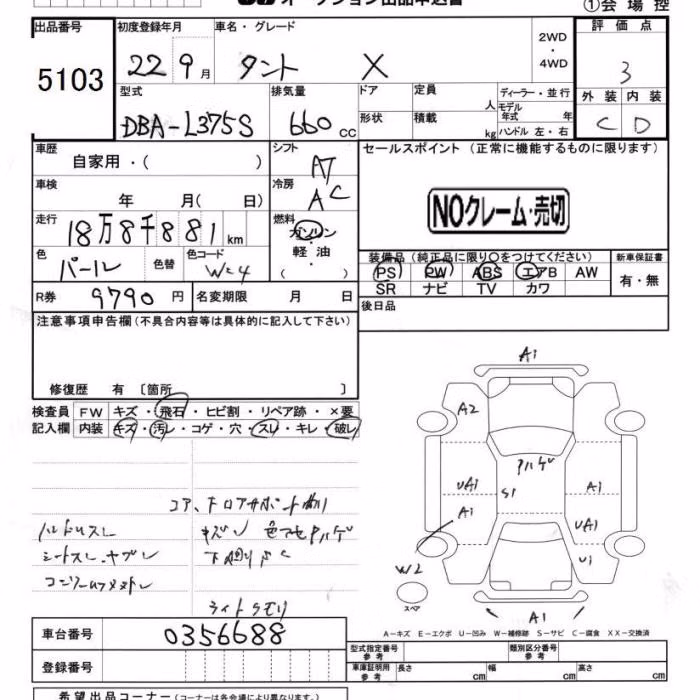 オークション出品申込書
①会場控
出品番号 初度登録年月 車名・グレード 2WD・4WD 評価点
5103 22 9月 タント X 3
型式 排気量 ドア 定員 人 ディーラー・並行 外装 内装
DBA-L375S 660 CC 形状 積載 kg モデル年式 年 ハンドル 左・右 C D
車歴 自家用・( ) シフト AT セールスポイント (正常に機能するものに限ります)
車検 年 月( 日) 冷房 AC
NOクレーム・売切
走行 18万8千881 km 燃料 ガソリン・軽油・( )
色 パール 色替 色コード W24 装備品 (純正品に限り○をつけてください) 新車保証書
PS PW ABS エアB AW 有・無
SR ナビ TV カワ
R券 9790 円 名変期限 月 日 後日品
注意事項申告欄 (不具合内容等は具体的に記入して下さい)
修復歴 有 〔箇所 〕
検査員 FW キズ・飛石・ヒビ割・リペア跡・×要
記入欄 内装 キズ・汚レ・コゲ・穴・スレ・キレ・破レ
A1
A2
アハゲ
UA1 S1 A1
A1 UA1
U1
W2
スペア
A1
コア、ドロアサポート曲り
ハンドルスレ キズ凹 色アセアハゲ
シートスレ・ヤブレ 下廻りサビ
ライトクモリ
A−キズ E−エクボ U−凹み W−補修跡 S−サビ C−腐食 XX−交換済
車台番号 0356688 型式指定番号 参考 類別区分番号 参考
登録番号 車庫証明用 参考 長さ cm 幅 cm 高さ cm
希望出品コーナー (コーナーは各会場により異なります。)